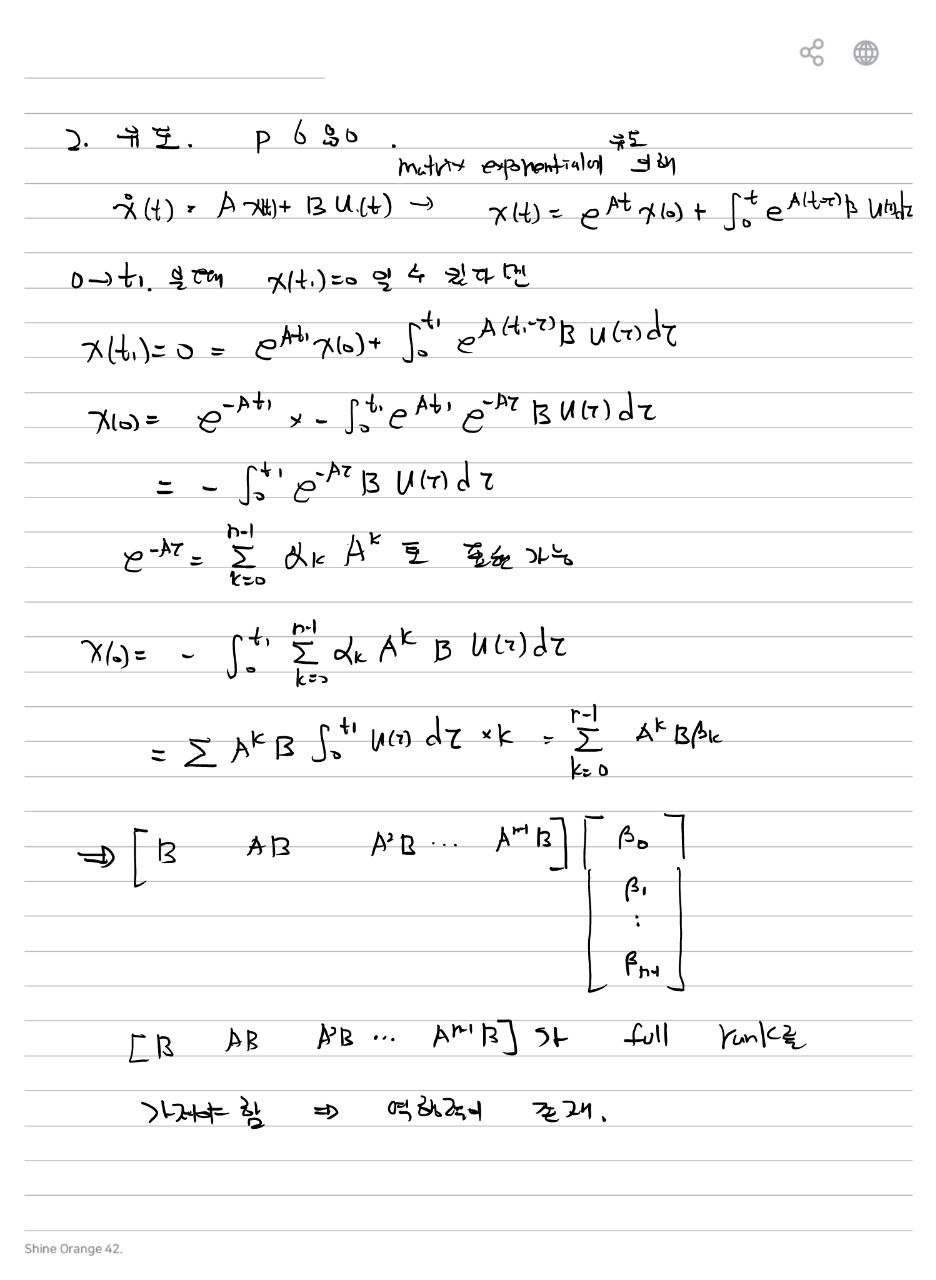 2. 유도. P 680.
matrix exponential에 의해 유도
ẋ(t) = A x(t) + B U(t) → x(t) = e^{At} x(0) + ∫_0^t e^{A(t-τ)} B U(τ)dτ
0→t₁. 일 수 있다면 x(t₁)=0
x(t₁)=0 = e^{At₁} x(0) + ∫_0^{t₁} e^{A(t₁-τ)} B U(τ) dτ
x(0) = e^{-At₁} × - ∫_0^{t₁} e^{At₁} e^{-Aτ} B U(τ) dτ
= - ∫_0^{t₁} e^{-Aτ} B U(τ) dτ
e^{-Aτ} = Σ_{k=0}^{n-1} α_k A^k 로 표현 가능
x(0) = - ∫_0^{t₁} Σ_{k=0}^{n-1} α_k A^k B U(τ) dτ
= Σ A^k B ∫_0^{t₁} U(τ) dτ × k = Σ_{k=0}^{n-1} A^k B β_k
⇒ [B AB A²B ... A^{n-1}B] [β₀
β₁
⋮
β_{n-1}]
[B AB A²B ... A^{n-1}B] 가 full rank를
가져야 함 ⇒ 역행렬이 존재.
Shine Orange 42.